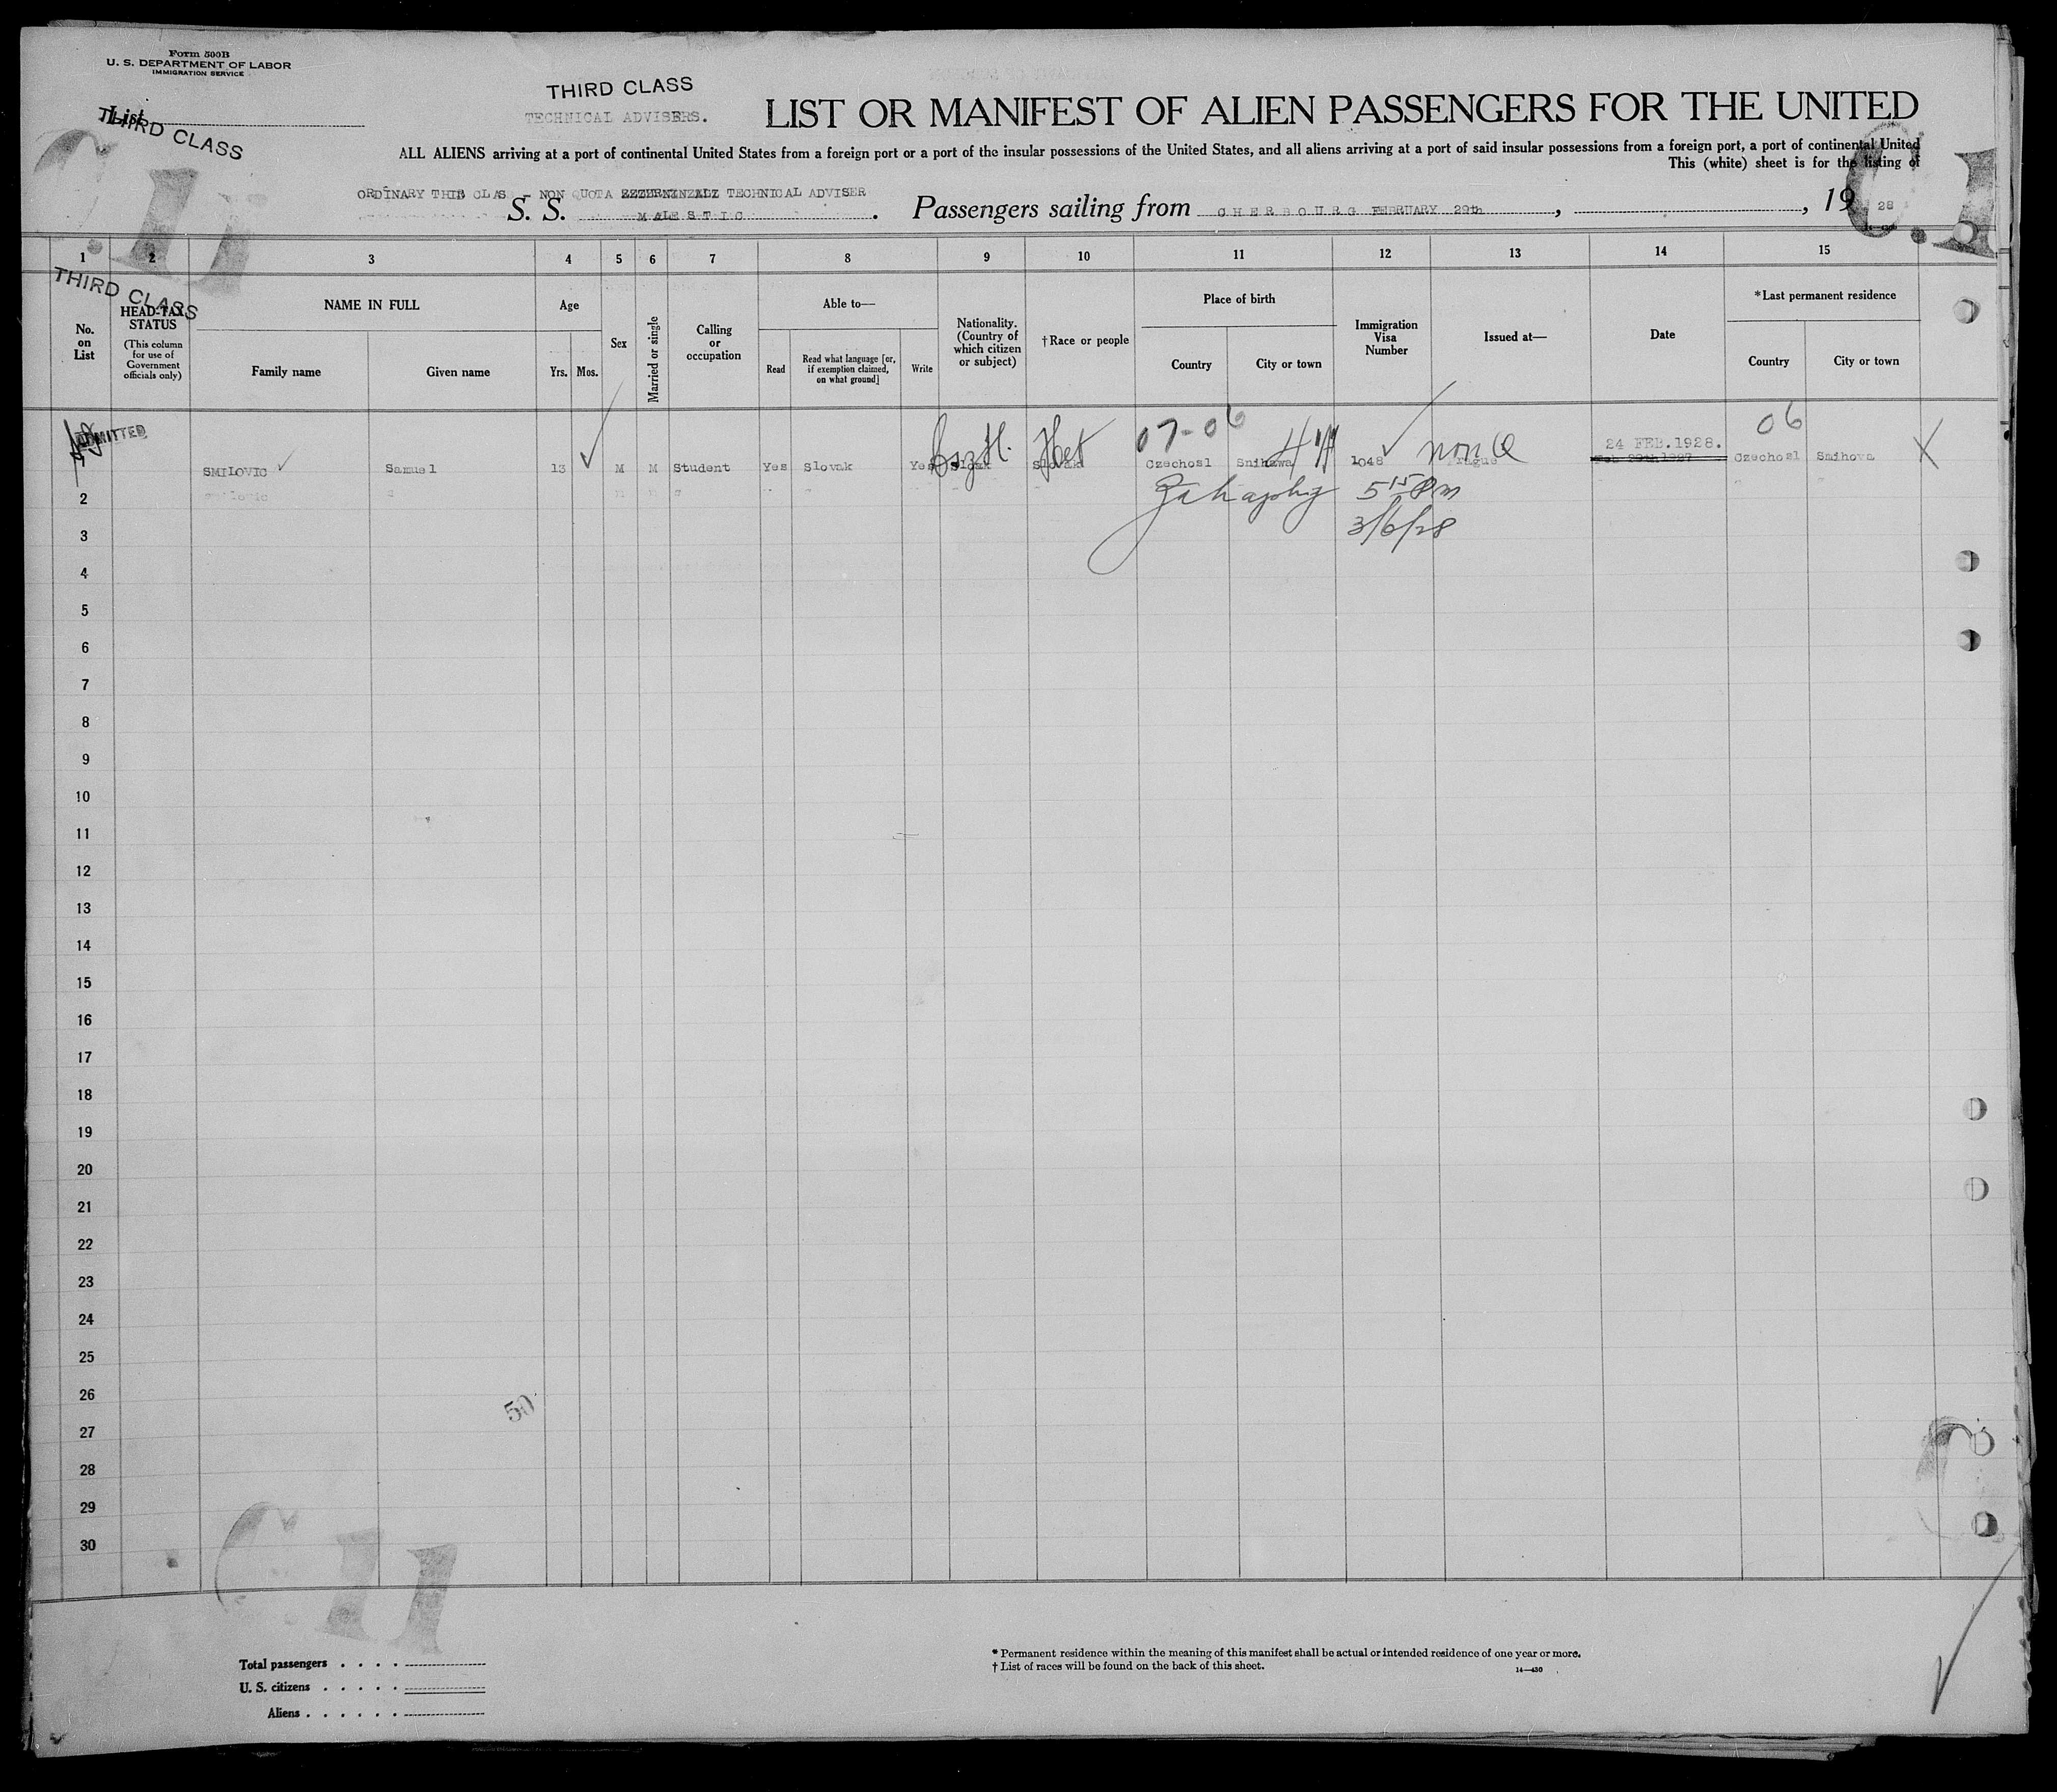 Form 500B
U. S. DEPARTMENT OF LABOR
IMMIGRATION SERVICE
List
THIRD CLASS
THIRD CLASS
TECHNICAL ADVISERS.
LIST OR MANIFEST OF ALIEN PASSENGERS FOR THE UNITED
ALL ALIENS arriving at a port of continental United States from a foreign port or a port of the insular possessions of the United States, and all aliens arriving at a port of said insular possessions from a foreign port, a port of continental United
This (white) sheet is for the listing of
ORDINARY THIS CLAS - NON QUOTA TECHNICAL ADVISER
S. S. MALESTIC. Passengers sailing from CHERBOURG FEBRUARY 29th, , 19 28
1 2 3 4 5 6 7 8 9 10 11 12 13 14 15
THIRD CLASS
No. on List
HEAD-TAX STATUS
(This column for use of Government officials only)
NAME IN FULL
Family name
Given name
Age
Yrs.
Mos.
Sex
Married or single
Calling or occupation
Able to—
Read
Read what language [or, if exemption claimed, on what ground]
Write
Nationality. (Country of which citizen or subject)
†Race or people
Place of birth
Country
City or town
Immigration Visa Number
Issued at—
Date
*Last permanent residence
Country
City or town
ADMITTED
07-06
24 FEB.1928.
06
SMILOVIC Samuel 13 M M Student Yes Slovak Yes Slovak Czechosl 1048 non Q Prague Czechosl X
5 15 Pm
3/6/28
2
3
4
5
6
7
8
9
10
11
12
13
14
15
16
17
18
19
20
21
22
23
24
25
26
50
27
28
29
30
Total passengers
U. S. citizens
Aliens
* Permanent residence within the meaning of this manifest shall be actual or intended residence of one year or more.
† List of races will be found on the back of this sheet.
14—430